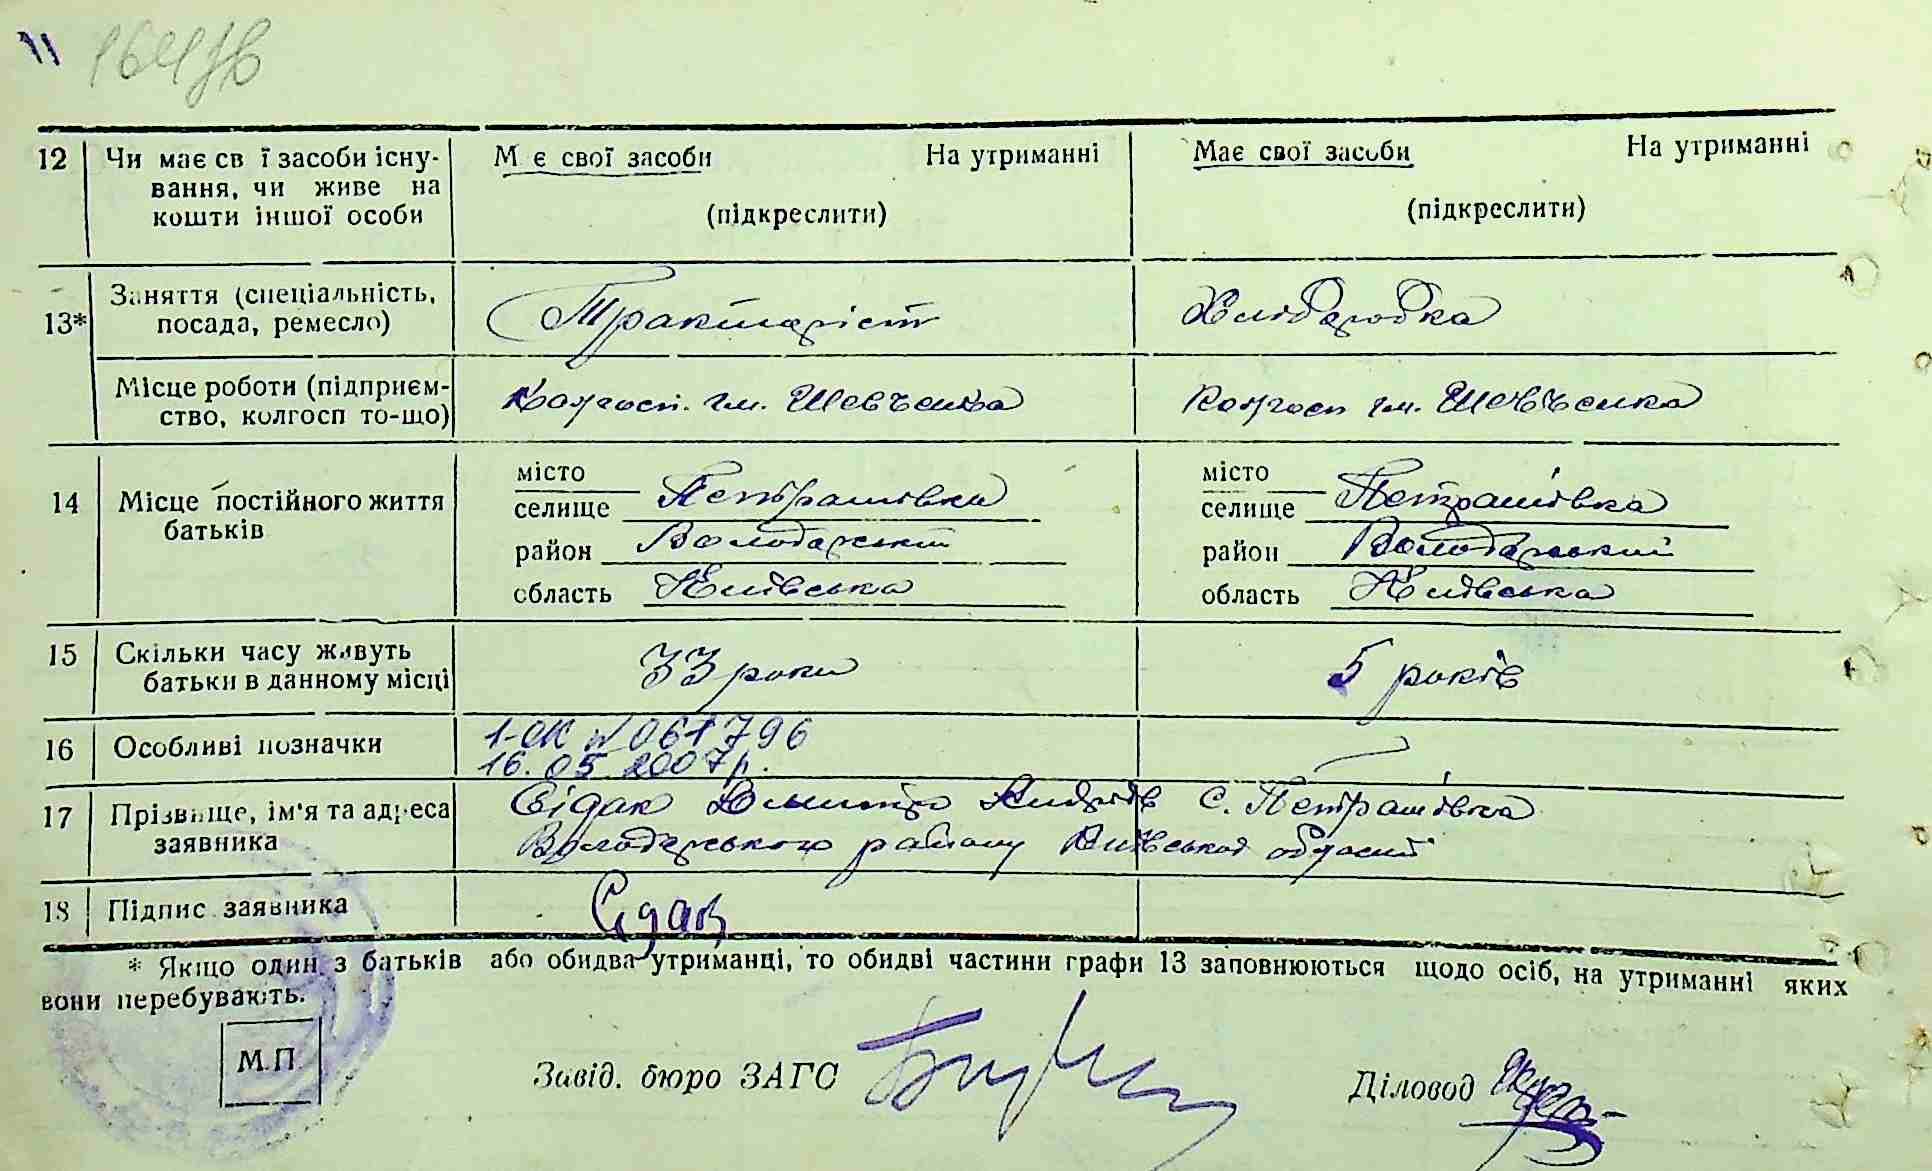 11
12 Чи має св ї засоби існу- М є свої засоби На утриманні Має свої засоби На утриманні
вання, чи живе на
кошти іншої особи (підкреслити) (підкреслити)
13* Заняття (спеціальність, Тракторіст Хліборобка
посада, ремесло)
Місце роботи (підприєм- Колгосп. ім. Шевченка Колгосп ім. Шевченка
ство, колгосп то-що)
14 Місце постійного життя місто місто
батьків селище Петрашівка селище Петрашівка
район Володарський район Володарський
область Київська область Київська
15 Скільки часу живуть 33 роки 5 років
батьки в данному місці
16 Особливі позначки 1-ОК № 061796
16.05.2007 р.
17 Прізвище, ім'я та адреса Сідак с. Петрашівка
заявника Володарського району Київської області
18 Підпис заявника Сідак
* Якщо один з батьків або обидва утриманці, то обидві частини графи 13 заповнюються щодо осіб, на утриманні яких
вони перебувають.
М.П.
Завід. бюро ЗАГС Діловод